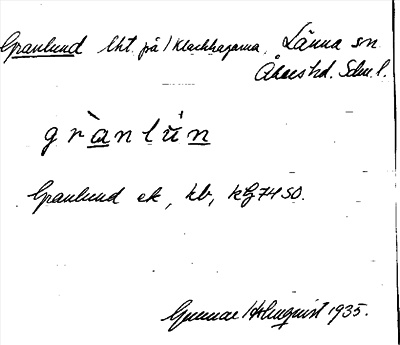 Granlund lht. på / Klackhagarna, Länna sn
Åkers hd. Sdm. l.
grànlún
Granlund ek, kb, kG7450.
Gunnar Holmquist 1935.